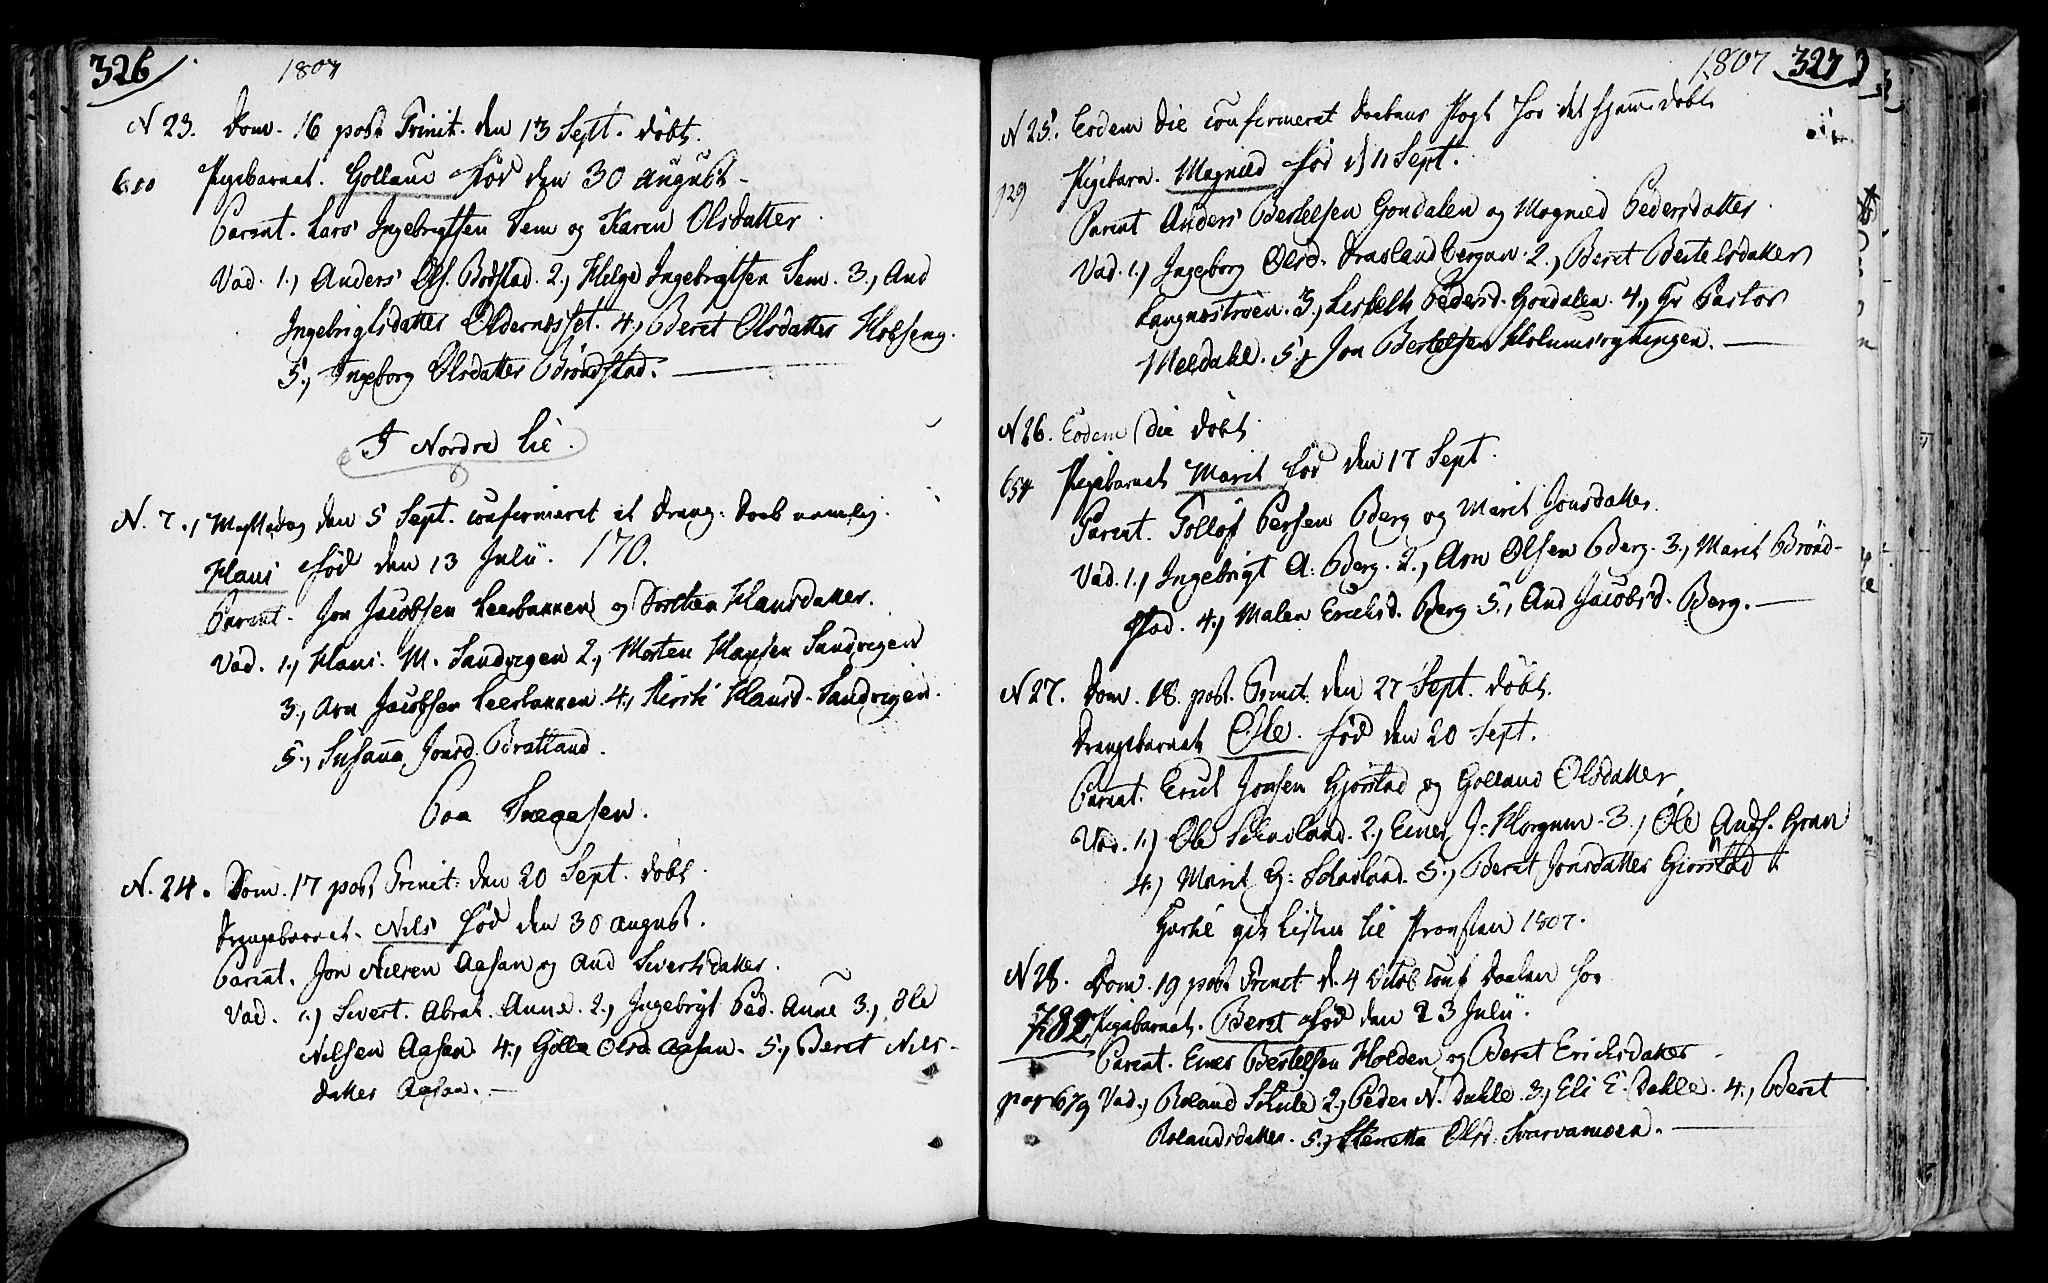 326
1807
N 23. Dom. 16 post Trinit. den 13 Sept. døbt
600 Pigebarnet. Gollaug fød den 30 august
Parent. Lars Ingebrigtsen Sem og Karen Olsdatter
Vad. 1., Anders Ols. Brøstad. 2., Helge Ingebrigtsen Sem. 3., And
Ingebrigtsdatter Oldernesset. 4., Beret Olsdatter Kolseng.
5., Ingeborg Olsdatter Brøndstad.
I Nordre Lie.
N. 7., den 5 Sept. confirmeret et Dreng: Daab nemlig.
Hans fød den 13 Julii. 170.
Parent. Jon Jacobsen Leerbakken og Dorthea Hansdatter.
Vad. 1., Hans. M. Sandvigen 2., Morten Hansen Sandvigen
3., Arn Jacobsen Leerbakken. 4., Kirsti Hansd. Sandvigen.
5., Susana Jonsd. Bratland.
Paa Snaasen.
N. 24. Dom. 17 post Trinit: den 20 Sept. døbt.
Drengebarnet. Nils fød den 30 august.
Parent. Jon Nilsen Aasan og And Sivertsdatter.
Vad. 1., Sivert. Abrah. Aune. 2., Ingebrigt Ped. Aune 3., Ole
Nilsen Aasan 4., Golla Olsd Aasan. 5., Beret Nils-
datter Aasan.
1807 327
N 25. Eodem die confirmeret Daabens Pagt for det hjemmedøbt
729 Pigebarn. Magnild fød d 11 Sept.
Parent Anders Bertelsen Gondalen og Magnild Pedersdatter.
Vad. 1., Ingeborg Olsd. 2., Beret Bertelsdatter
Langnestrøen. 3., Lisbeth Pedersd. Gondalen. 4., Hr Pastor
Meldahl. 5., Jon Bertelsen Holumsrygningen.
N 26. Eodem die døbt.
654 Pigebarnet Marit fød den 17 Sept.
Parent. Tollof Persen Berg og Marit Jonsdatter.
Vad. 1., Ingebrigt A: Berg. 2., Arn Olsen Berg. 3., Marit Brønd-
stad. 4., Malen Ericksd. Berg 5., And Jacobsd. Berg.
N 27. Dom. 18. post. Trinit. den 27 Sept. døbt.
Drengebarnet Ole. fød den 20 Sept.
Parent. Erik Jonsen Gjørstad og Gollaug Olsdatter
Vad. 1., Ole 2., Einer J: Horgum. 3., Ole Ands. Gran
4., Marit 5., Beret Jonsdatter Gjørstad
Hertil gik Listen til Provsten 1807.
N 28. Dom. 19 post Trinit d. 4 Octob conf Daaben for
782 Pigebarnet. Beret fød den 23 Julii.
Parent. Einer Bertelsen Holden og Beret Ericksdatter
pag 679 Vad., Roland Schile 2., Peder N. Dahle. 3., Eli E. Dahle. 4., Beret
Rolandsdatter. 5., Olsd. Svarvamoen.